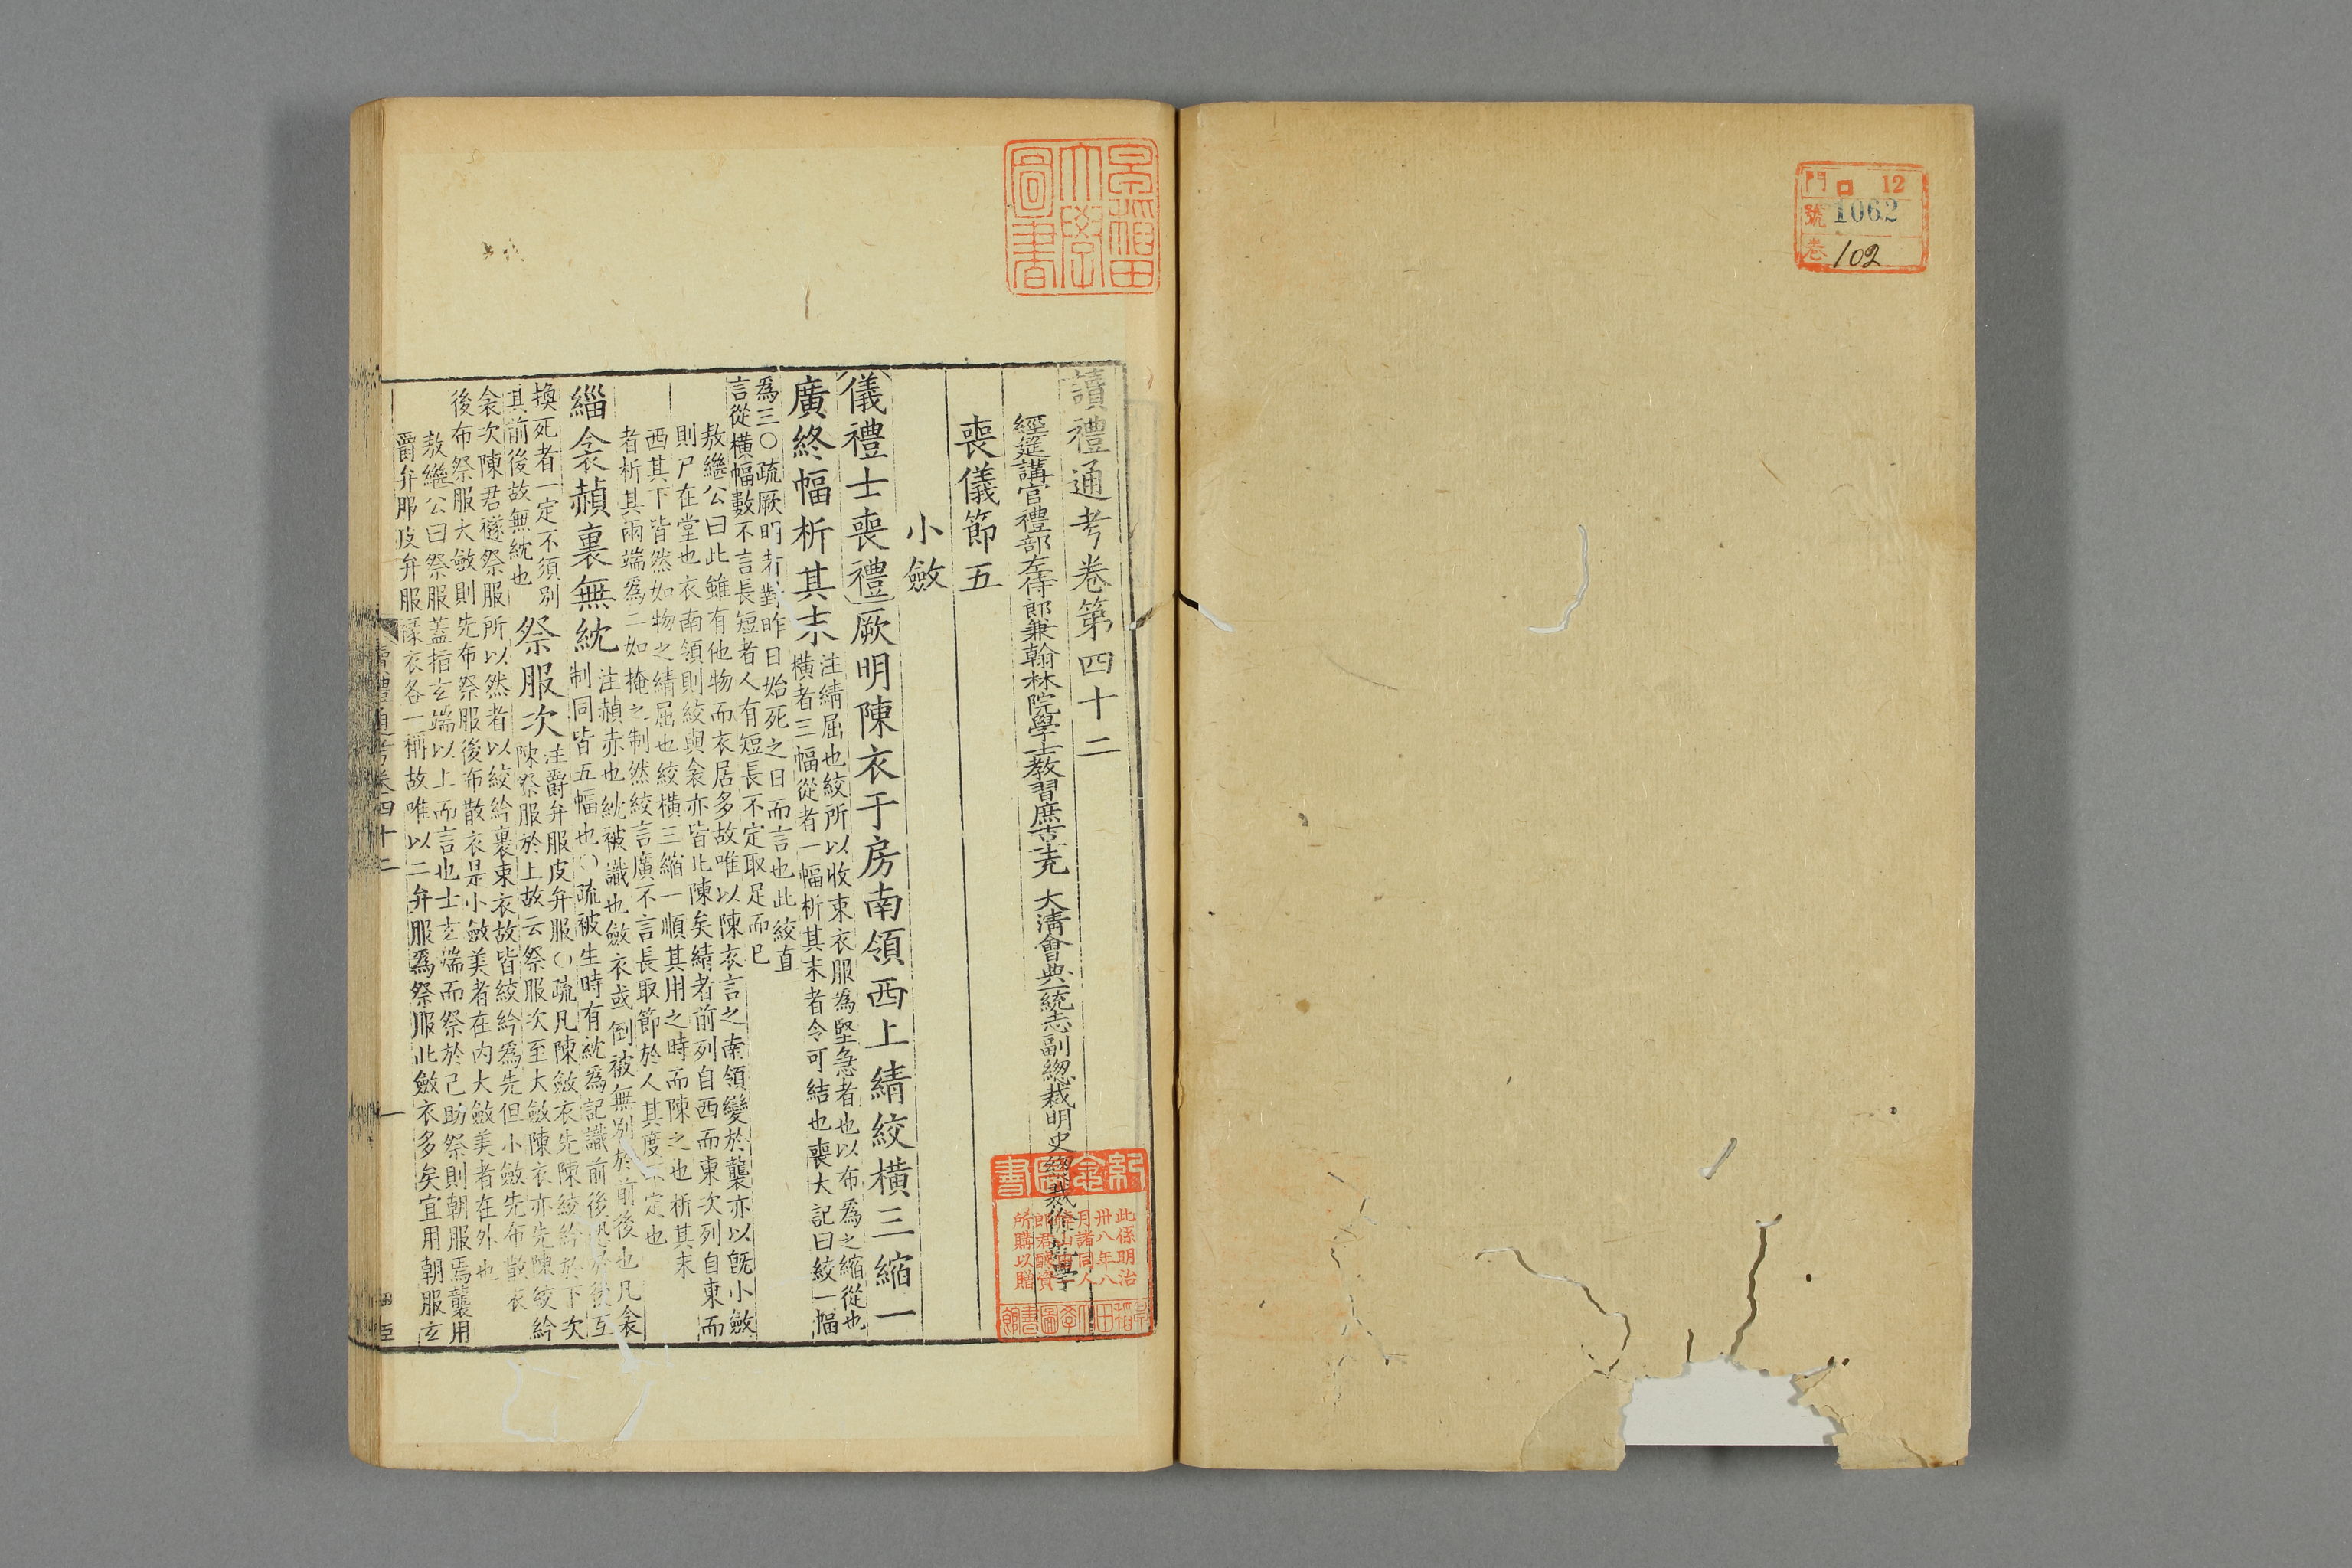 門 ロ 12
號 1062
卷 102
早稻田大學圖書
讀禮通考卷第四十二
經筵講官禮部左侍郎兼翰林院學士教習庶吉士充 大清會典一統志副總裁明史總裁徐乾學
紀念圖書
此係明治
卅八年八
月諸同人
所購以贈
早稻田大學圖書館
喪儀節五
小斂
儀禮士喪禮厥明陳衣于房南領西上綪絞橫三縮一
廣終幅析其末
注綪屈也絞所以收束衣服爲堅急者也以布爲之縮從也
橫者三幅從者一幅析其末者令可結也喪大記曰絞一幅
爲三○疏厥明者對昨日始死之日而言也此絞直
言從橫幅數不言長短者人有短長不定取足而已
敖繼公曰此雖有他物而衣居多故唯以陳衣言之南領變於襲亦以旣小斂
則尸在堂也衣南領則絞與衾亦皆北陳矣綪者前列自西而東次列自東而
西其下皆然如物之綪屈也絞橫三縮一順其用之時而陳之也析其末
者析其兩端爲二如掩之制然絞言廣不言長取節於人其度不定也
緇衾赬裏無紞
注赬赤也紞被識也斂衣或倒被無別於前後也凡衾
制同皆五幅也○疏被生時有紞爲記識前後恐於後互
換死者一定不須別
其前後故無紞也
祭服次
注爵弁服皮弁服○疏凡陳斂衣先陳絞紟於下次
陳祭服於上故云祭服次至大斂陳衣亦先陳絞紟
衾次陳君襚祭服所以然者以絞紟裏束衣故皆絞紟爲先但小斂先布散衣
後布祭服大斂則先布祭服後布散衣是小斂美者在內大斂美者在外也
敖繼公曰祭服蓋指玄端以上而言也士玄端而祭於己助祭則朝服焉襲用
爵弁服皮弁服褖衣各一稱故唯以二弁服爲祭服此斂衣多矣宜用朝服玄
讀禮通考卷四十二
一